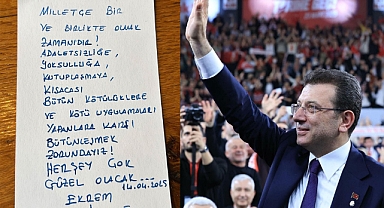 MİLLETÇE BİR
VE BİRLİKTE OLMA
ZAMANIDIR!
ADALETSİZLİĞE,
YOKSULLUĞA,
KUTUPLAŞMAYA,
KISACASI
BÜTÜN KÖTÜLÜKLERE
VE KÖTÜ UYGULAMALARI
YAPANLARA KARŞI
BÜTÜNLEŞMEK
ZORUNDAYIZ!
HERŞEY ÇOK
GÜZEL OLACAK...
14.04.2025
EKREM